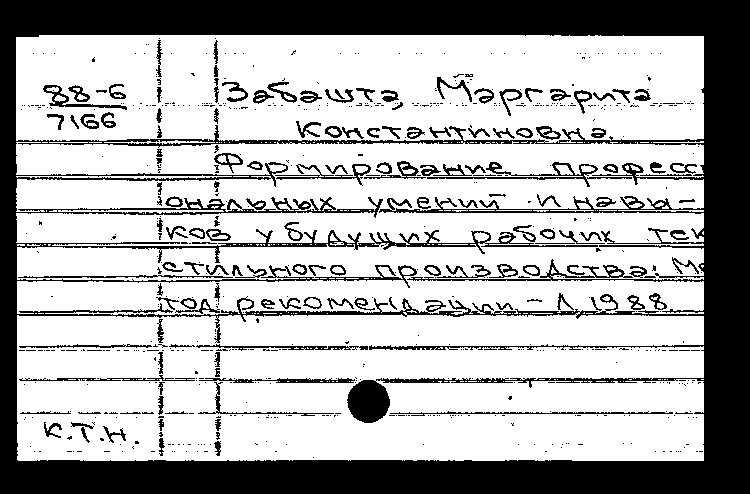 88-6
7166
Забашта, Маргарита
Константиновна.
Формирование професси
ональных умений и навы-
ков у будущих рабочих тек
стильного производства: Ме
тод рекомендации - Л, 1988
К.Т.Н.